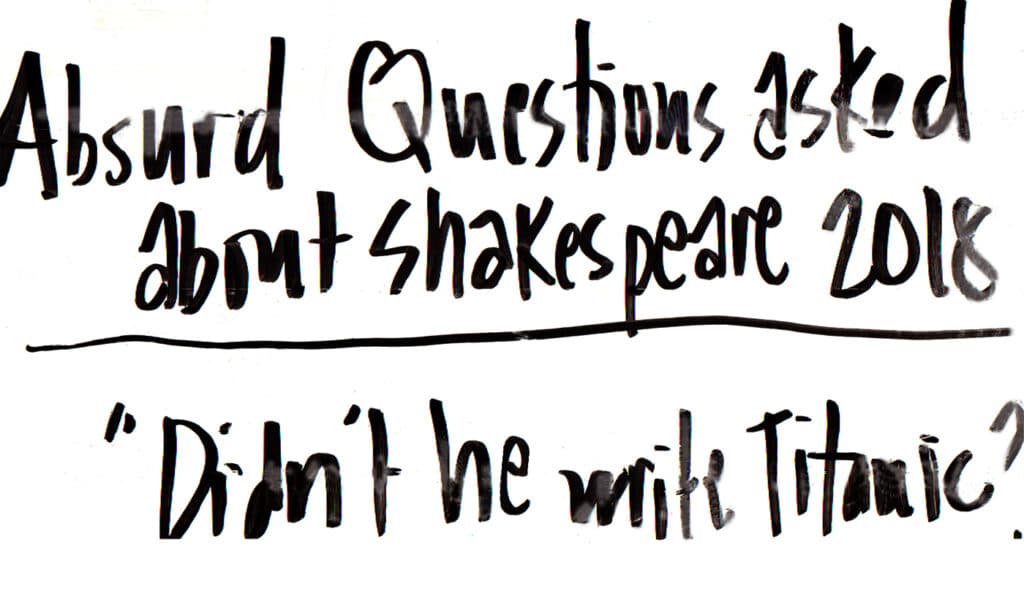 Absurd Questions asked
about Shakespeare 2018
"Didn't he write Titanic?